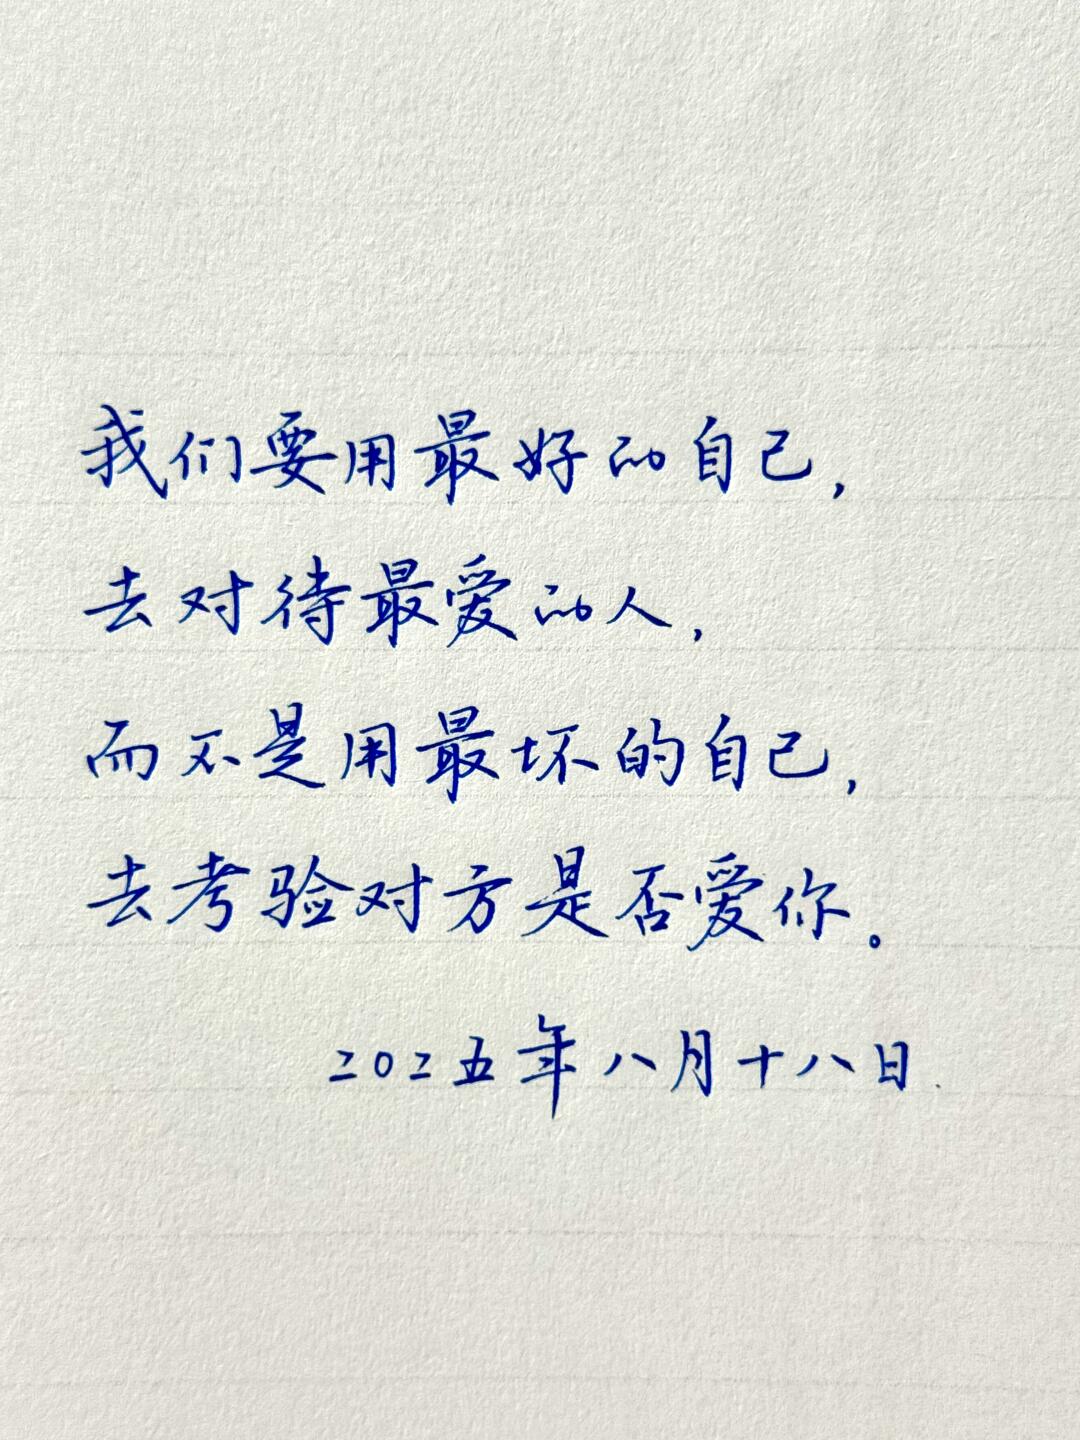 我们要用最好的自己，
去对待最爱的人，
而不是用最坏的自己，
去考验对方是否爱你。
二〇二五年八月十八日